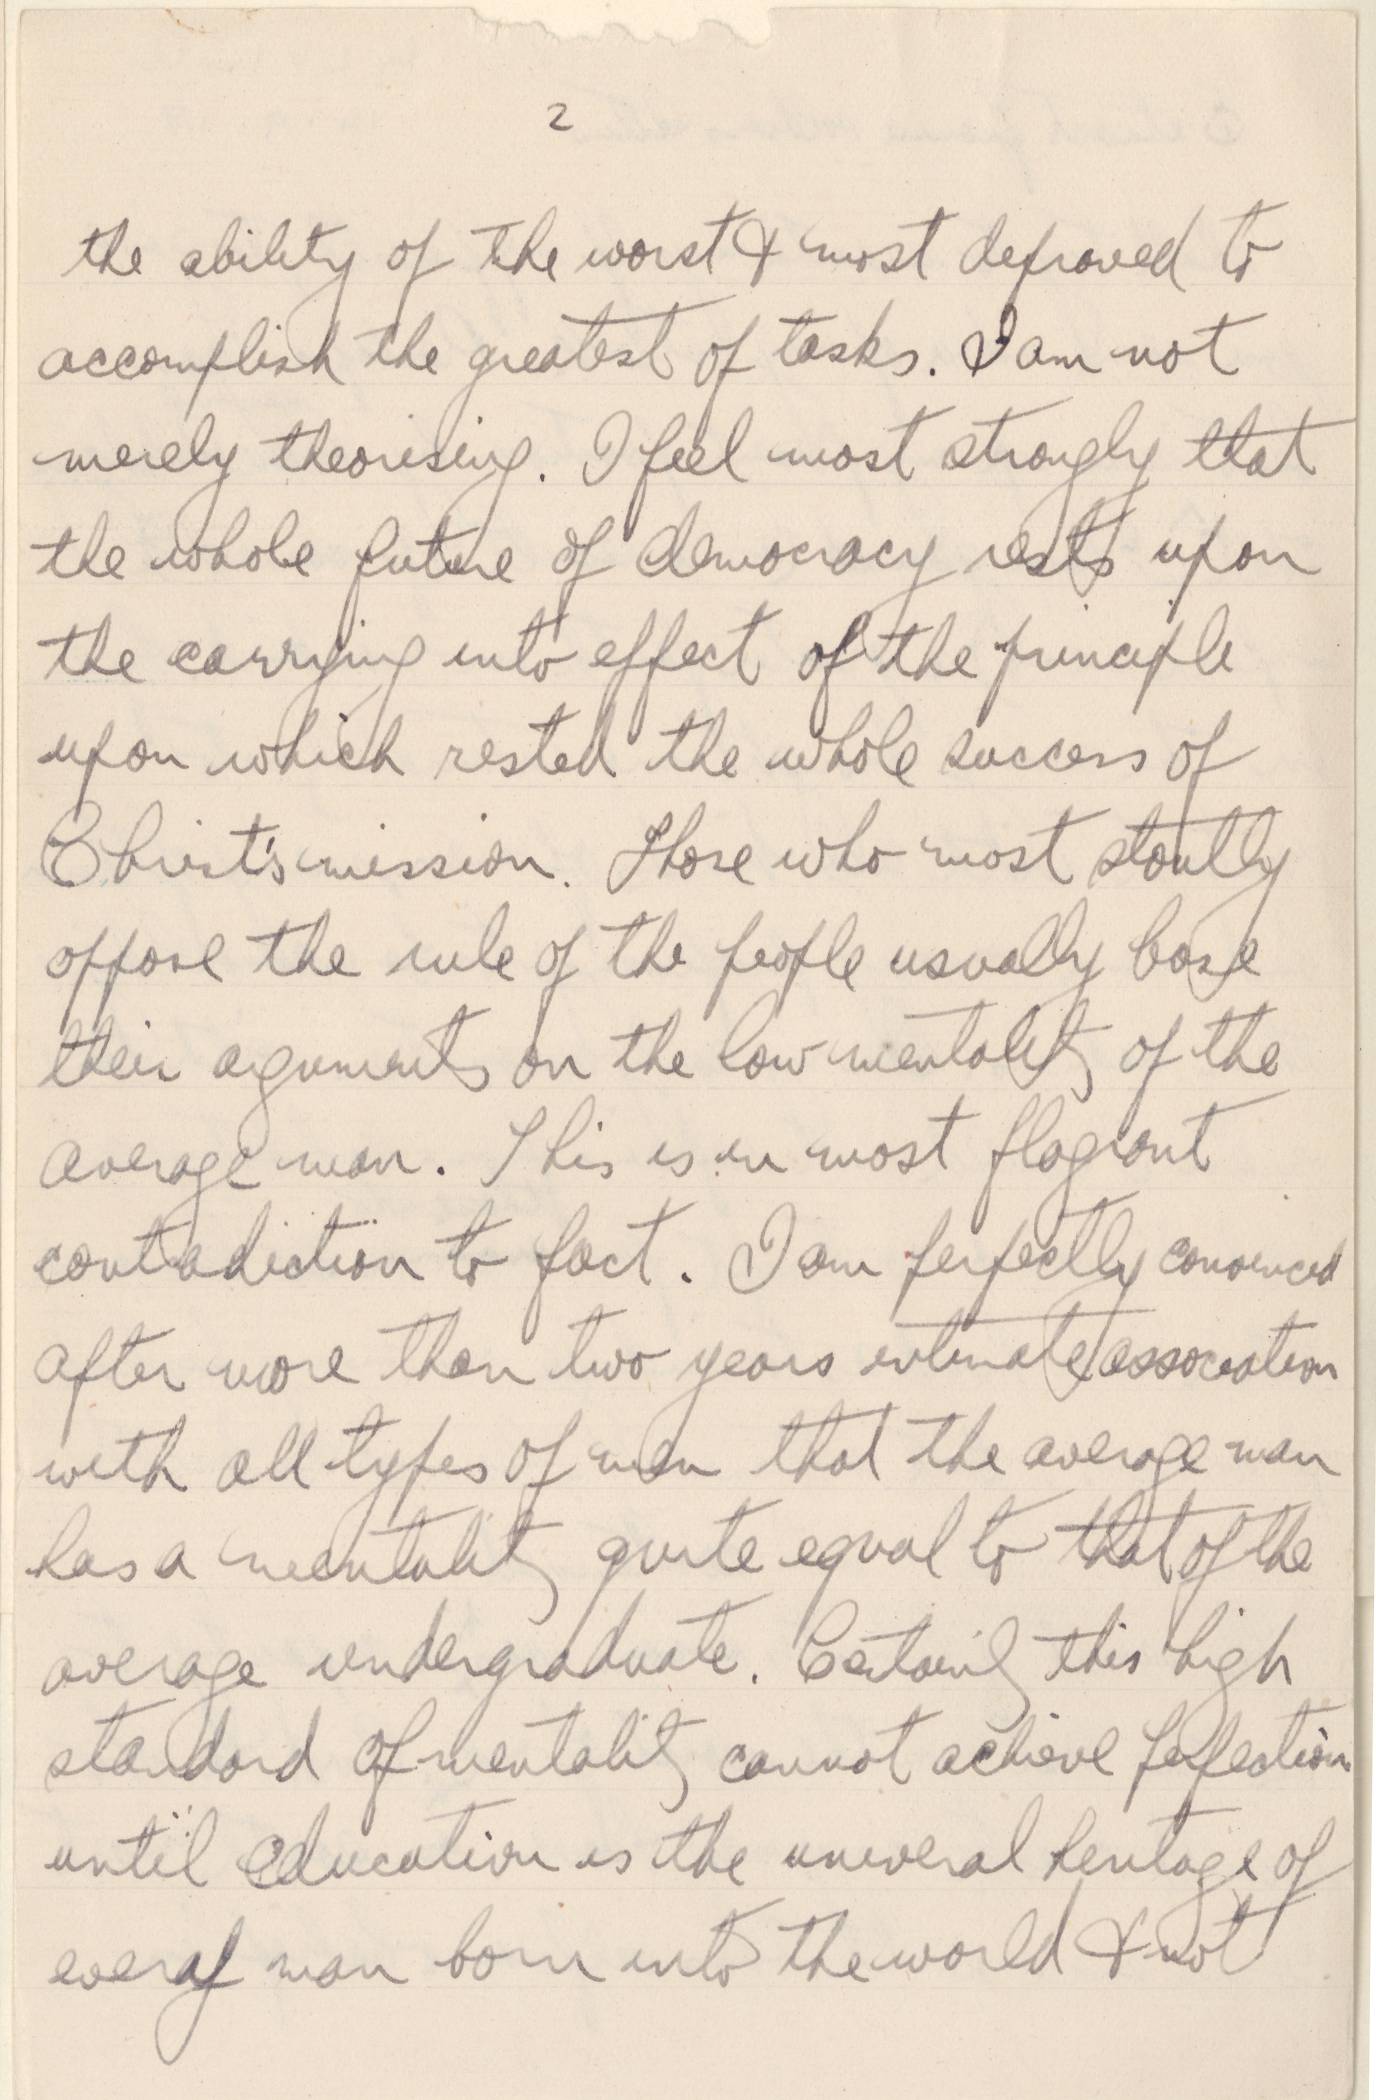 2
the ability of the worst & most depraved to
accomplish the greatest of tasks. I am not
merely theorising. I feel most strongly that
the whole future of democracy rests upon
the carrying into effect of the principle
upon which rested the whole success of
Christ's mission. Those who most stoutly
oppose the rule of the people usually base
their arguments on the low mentality of the
average man. This is in most flagrant
contradiction to fact. I am perfectly convinced
after more than two years intimate association
with all types of men that the average man
has a mentality quite equal to that of the
average undergraduate. Certainly this high
standard of mentality cannot achieve perfection
until education is the univeral heritage of
every man born into the world & not